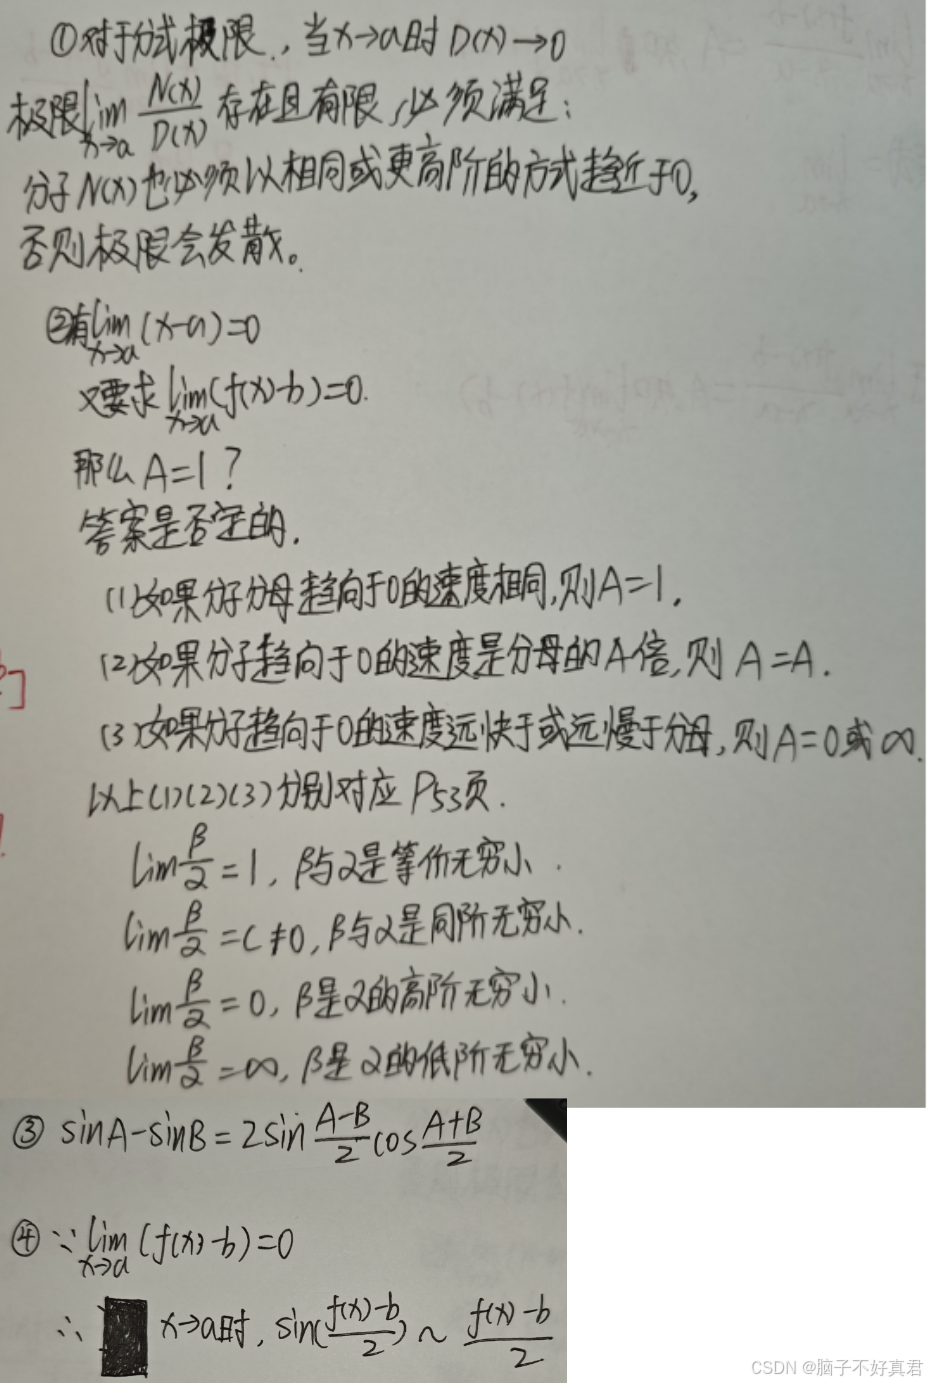 ①对于分式极限,当x→a时D(x)→0
极限lim x→a N(x)/D(x) 存在且有限,必须满足:
分子N(x)也必须以相同或更高阶的方式趋近于0,
否则极限会发散。
②有lim x→a (x-a)=0
又要求lim x→a (f(x)-b)=0.
那么A=1?
答案是否定的.
(1)如果分子分母趋向于0的速度相同,则A=1.
(2)如果分子趋向于0的速度是分母的A倍,则A=A.
(3)如果分子趋向于0的速度远快于或远慢于分母,则A=0或∞.
以上(1)(2)(3)分别对应P53页.
lim β/α =1, β与α是等价无穷小.
lim β/α =C≠0, β与α是同阶无穷小.
lim β/α =0, β是α的高阶无穷小.
lim β/α =∞, β是α的低阶无穷小.
③ sinA-sinB=2sin (A-B)/2 cos (A+B)/2
④ ∵ lim x→a (f(x)-b)=0
∴ x→a时, sin((f(x)-b)/2) ~ (f(x)-b)/2
CSDN @脑子不好真君